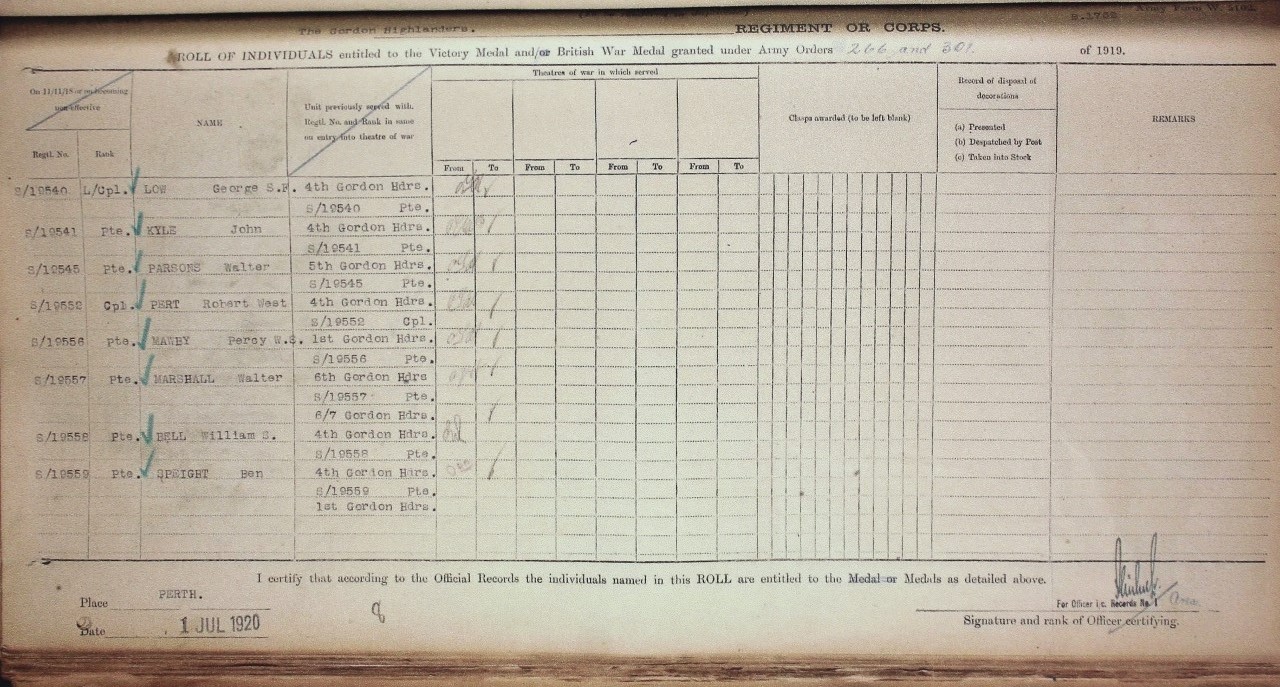 B.1702. Army Form W. 5101.
The Gordon Highlanders. REGIMENT OR CORPS.
ROLL OF INDIVIDUALS entitled to the Victory Medal and/or British War Medal granted under Army Orders 266 and 301. of 1919.
On 11/11/18 or on becoming non-effective
NAME
Unit previously served with. Regtl. No. and Rank in same on entry into theatre of war
Theatres of war in which served
Clasps awarded (to be left blank)
Record of disposal of decorations
(a) Presented
(b) Despatched by Post
(c) Taken into Stock
REMARKS
Regtl. No. Rank From To From To From To From To
S/19540 L/Cpl. LOW George S.F. 4th Gordon Hdrs.
S/19540 Pte.
S/19541 Pte. KYLE John 4th Gordon Hdrs.
S/19541 Pte.
S/19545 Pte. PARSONS Walter 5th Gordon Hdrs.
S/19545 Pte.
S/19552 Cpl. PERT Robert West 4th Gordon Hdrs.
S/19552 Cpl.
S/19556 Pte. MAWBY Percy W.S. 1st Gordon Hdrs.
S/19556 Pte.
S/19557 Pte. MARSHALL Walter 6th Gordon Hdrs
S/19557 Pte.
6/7 Gordon Hdrs.
S/19558 Pte. BELL William S. 4th Gordon Hdrs.
S/19558 Pte.
S/19559 Pte. SPEIGHT Ben 4th Gordon Hdrs.
S/19559 Pte.
1st Gordon Hdrs.
I certify that according to the Official Records the individuals named in this ROLL are entitled to the Medal or Medals as detailed above.
Place PERTH.
Date 1 JUL 1920
8
For Officer i/c. Records No 1 Area
Signature and rank of Officer certifying.